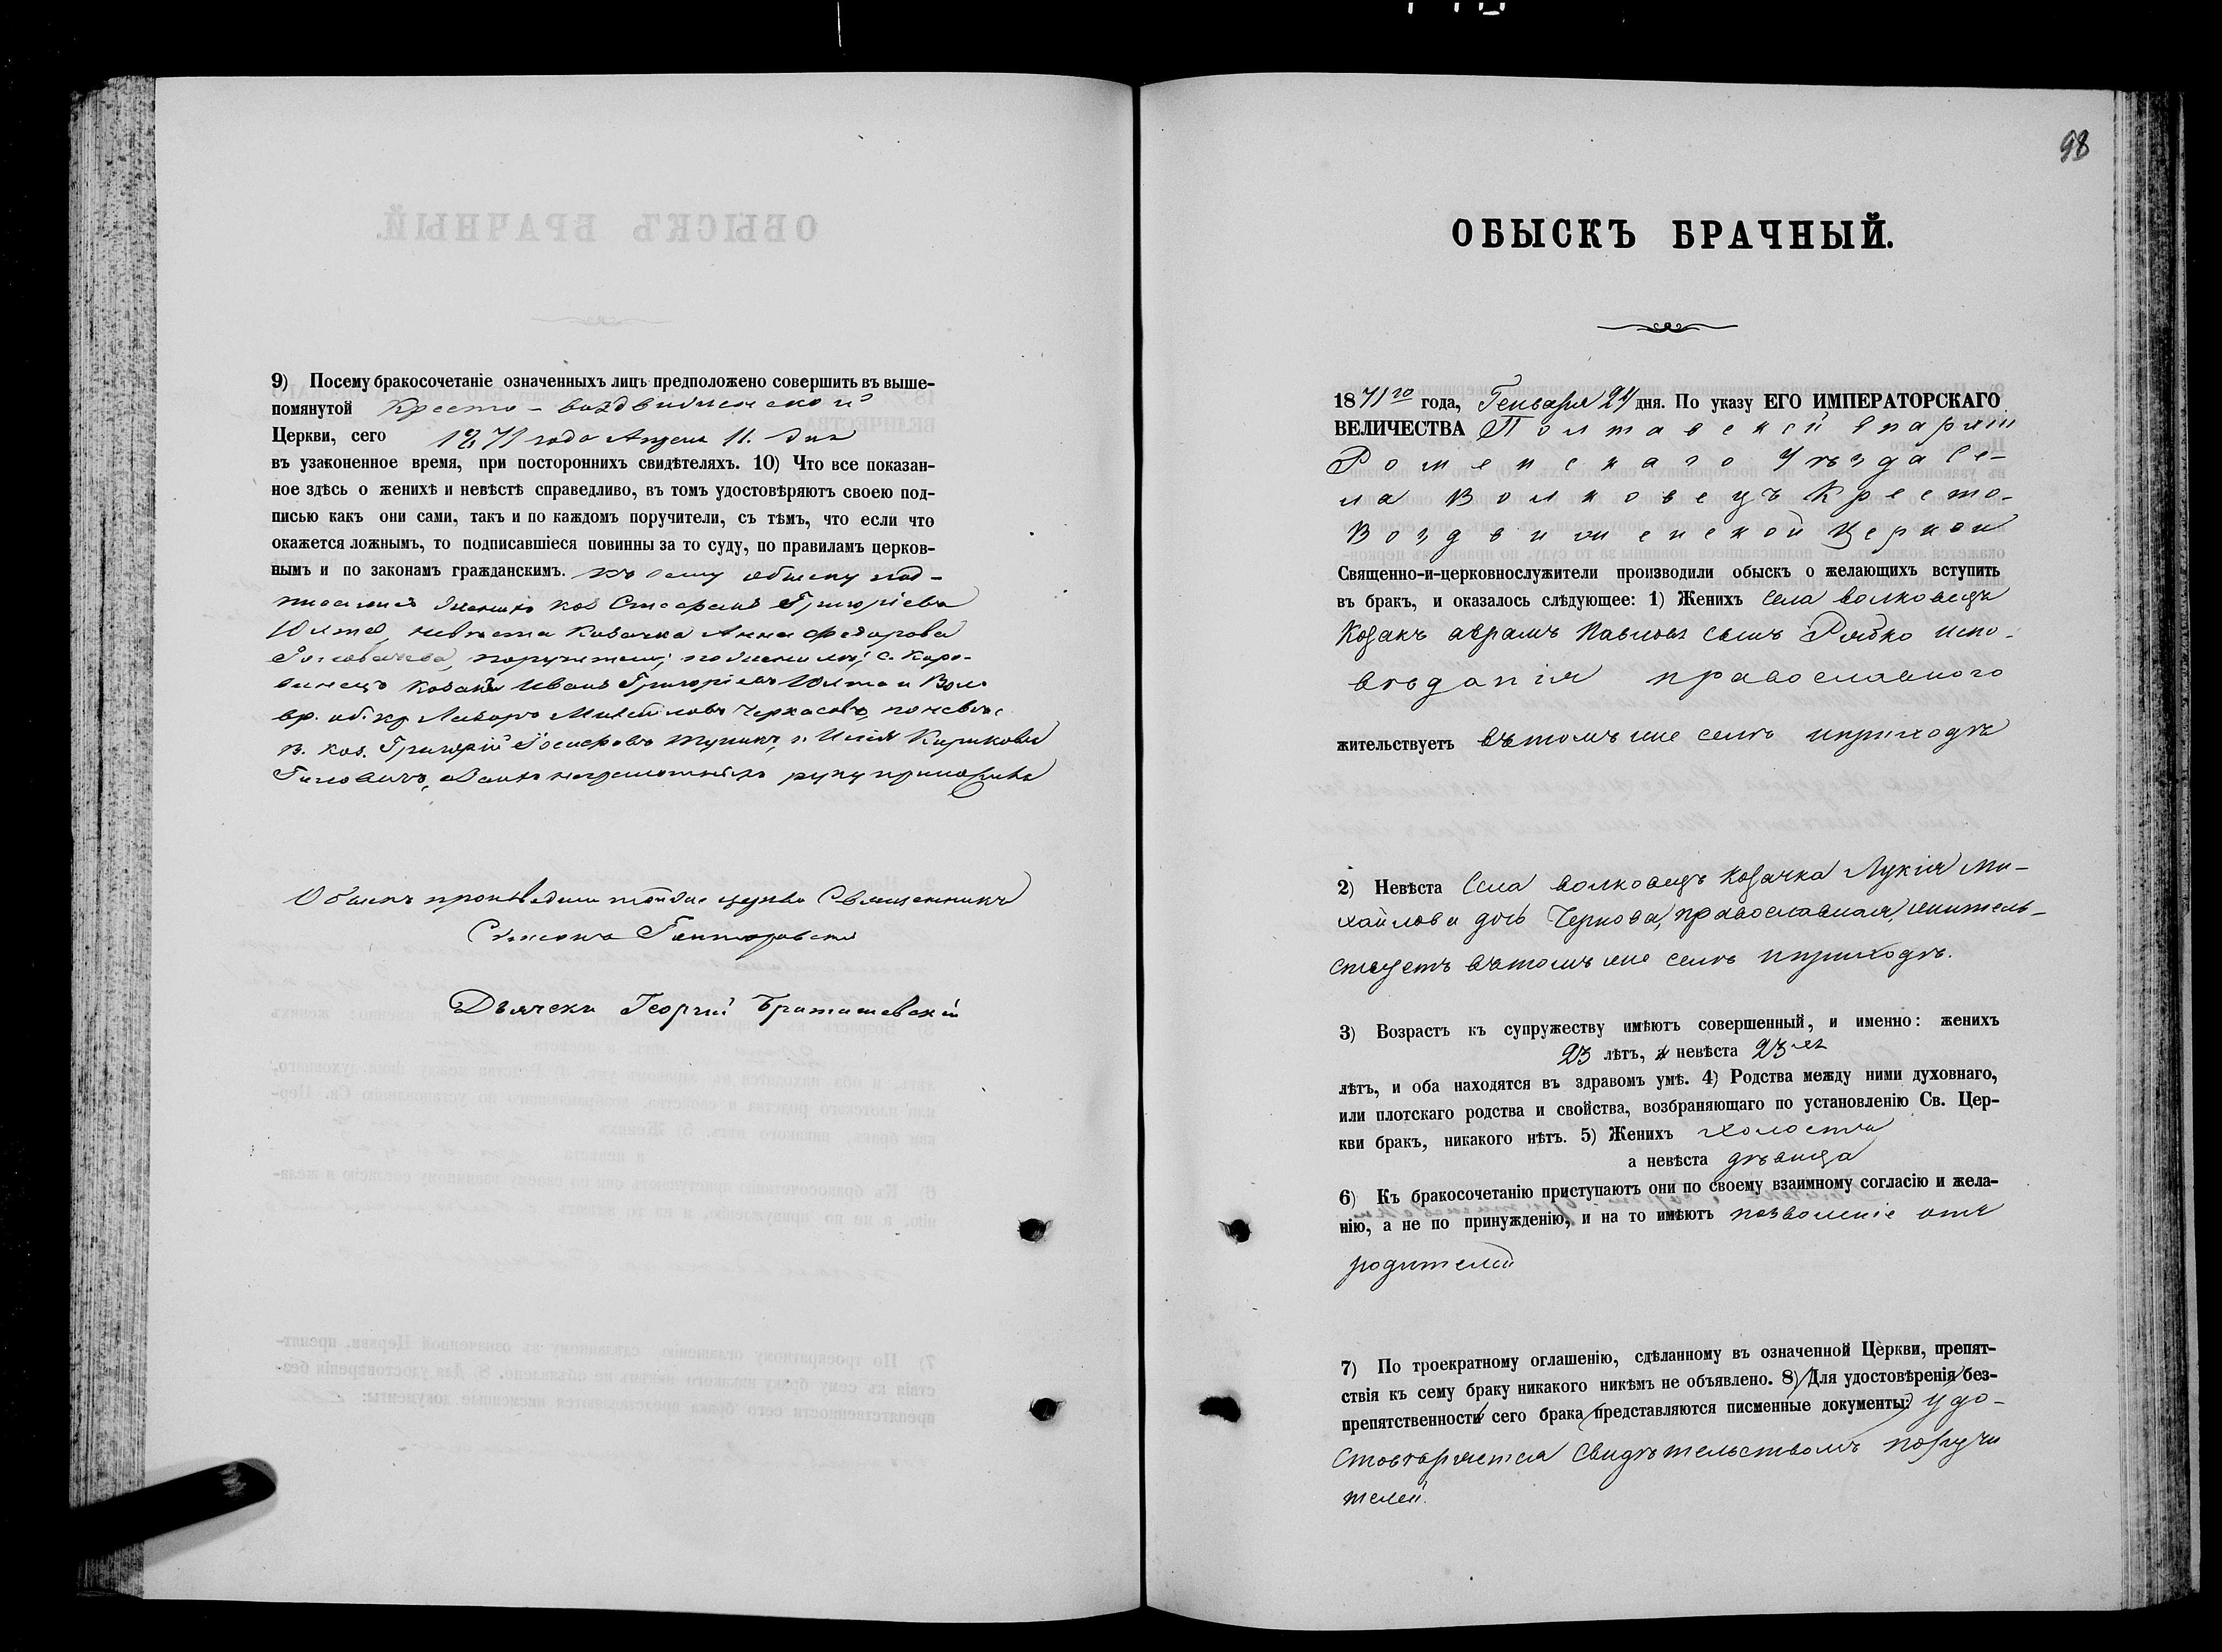 9) Посему бракосочетаніе означенныхъ лицъ предположено совершить въ выше-
помянутой Кресто-воздвиженской
Церкви, сего 1871 года Апреля 11. дня
въ узаконенное время, при постороннихъ свидѣтеляхъ. 10) Что все показан-
ное здѣсь о женихѣ и невѣстѣ справедливо, въ томъ удостовѣряютъ своею под-
писью какъ они сами, такъ и по каждомъ поручители, съ тѣмъ, что если что
окажется ложнымъ, то подписавшіеся повинны за то суду, по правиламъ церков-
нымъ и по законамъ гражданскимъ. Къ сему обыску под-
писались женихъ коз Стефанъ Григоріевъ
невѣста Козачка Анна Федорова
поручители; по женихѣ; с. Коро-
винецъ Козакъ Иванъ Григоріевъ и
Михайловъ Черкасовъ, по невѣс
В. коз. Григорій Іосифовъ и Илія Кириковъ
неграмотныхъ руку приложилъ
Обыскъ производили тойже церкви Священникъ
Симеонъ
Дьячекъ Георгій Браташевскій
98
ОБЫСКЪ БРАЧНЫЙ.
1871го года, Генваря 24 дня. По указу ЕГО ИМПЕРАТОРСКАГО
ВЕЛИЧЕСТВА Полтавской Епархіи
Роменскаго Уѣзда Се-
ла Волковецъ Кресто-
Воздвиженской Церкви
Священно-и-церковнослужители производили обыскъ о желающихъ вступить
въ бракъ, и оказалось слѣдующее: 1) Женихъ Села Волковецъ
Козакъ Аврамъ Павловъ сынъ Рябко испо-
вѣданія православного
жительствуетъ въ томъ же селѣ и приходѣ
2) Невѣста Села Волковецъ Козачка Лукія Ми-
хайлова дочь Чернова, православная, житель-
ствуетъ въ томъ же селѣ и приходѣ.
3) Возрастъ къ супружеству имѣютъ совершенный, и именно: женихъ
23 лѣтъ, а невѣста 23 лѣ
лѣтъ, и оба находятся въ здравомъ умѣ. 4) Родства между ними духовнаго,
или плотскаго родства и свойства, возбраняющаго по установленію Св. Цер-
кви бракъ, никакого нѣтъ. 5) Женихъ холостъ
а невѣста дѣвица
6) Къ бракосочетанію приступаютъ они по своему взаимному согласію и жела-
нію, а не по принужденію, и на то имѣютъ позволеніе отъ
родителей
7) По троекратному оглашенію, сдѣланному въ означенной Церкви, препят-
ствія къ сему браку никакого никѣмъ не объявлено. 8) Для удостовѣренія без-
препятственности сего брака представляются писменные документы: удо-
стовѣряется свидѣтельствомъ поручи
телей.